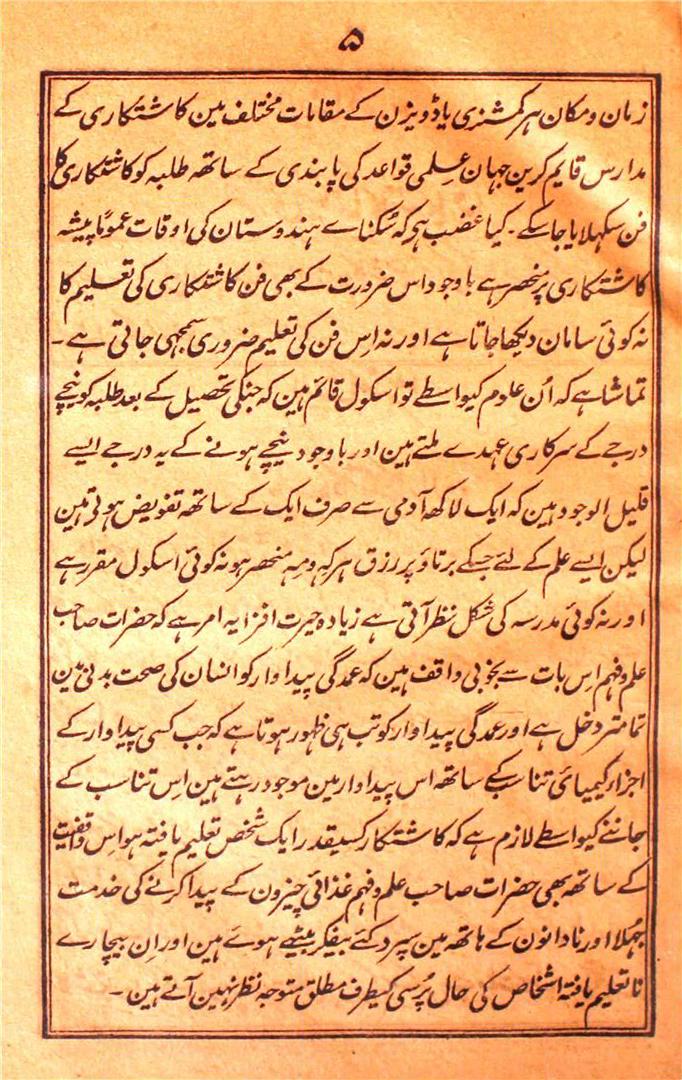 ۵
زمان و مکان ہر کمشنری یا ڈویزن کے مقامات مختلف مین کاشتکاری کے
مدارس قایم کرین جہان علمی قواعد کی پابندی کے ساتھ طلبہ کو کاشتکاری کا
فن سکہلایا جا سکے۔ کیا غضب ہے کہ سُکناے ہندوستان کی اوقات عموماً پیشہ
کاشتکاری پر منحصر ہے باوجود اس ضرورت کے بھی فن کاشتکاری کی تعلیم کا
نہ کوئی سامان دیکھا جاتا ہے اور نہ اِس فن کی تعلیم ضروری سمجھی جاتی ہے۔
تماشا ہے کہ اُن علوم کیواسطے تو اسکول قائم ہین کہ جنکی تحصیل کے بعد طلبہ کو نیچے
درجے کے سرکاری عہدے ملتے ہین اور باوجود نیچے ہونے کے یہ درجے ایسے
قلیل الوجود ہین کہ ایک لاکھ آدمی سے صرف ایک کے ساتھ تفویض ہوتے ہین
لیکن ایسے علم کے لئے جسکے برتاؤ پر رزق ہر کہ و مہ منحصر ہو نہ کوئی اسکول مقرر ہے
اور نہ کوئی مدرسہ کی شکل نظر آتی ہے زیادہ حیرت افزا یہ امر ہے کہ حضرات صاحب
علم و فہم اِس بات سے بخوبی واقف ہین کہ عمدگی پیداوار کو انسان کی صحت بدنی مین
تمامتر دخل ہے اور عمدگی پیداوار کو تب ہی ظہور ہوتا ہے کہ جب کسی پیداوار کے
اجزاء کیمیائی تناسب کے ساتھ اس پیداوار مین موجود رہتے ہین اِس تناسب کے
جاننے کیواسطے لازم ہے کہ کاشتکار کسیقدر ایک شخص تعلیم یافتہ ہو اس واقفیت
کے ساتھ بھی حضرات صاحب علم و فہم غذائی چیزون کے پیدا کرنے کی خدمت
جُہلا اور نادانون کے ہاتھ مین سپرد کئے بیفکر بیٹھے ہوے ہین اور اِن بیچارے
نا تعلیم یافتہ اشخاص کی حال پُرسی کیطرف مطلق متوجہ نظر نہین آتے ہین۔